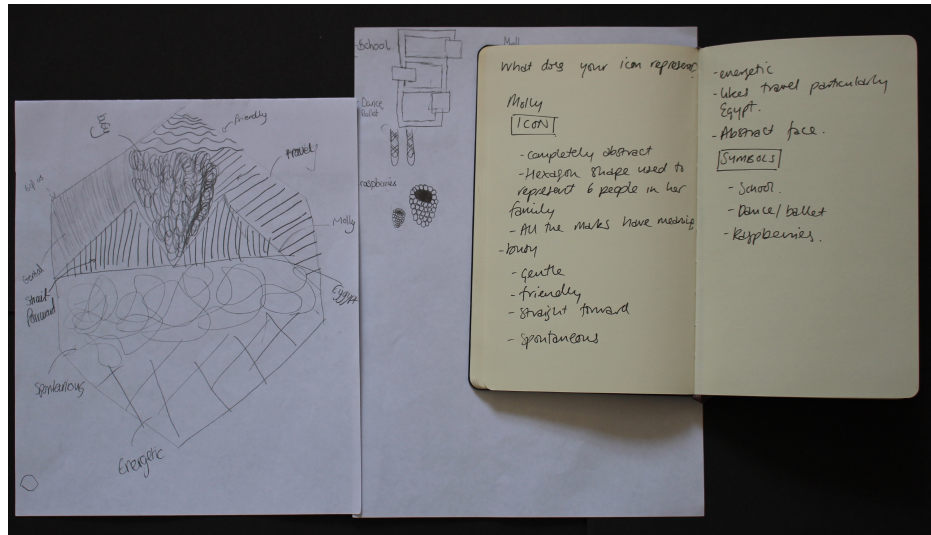 friendly
travel
Molly
Straight
Forward
Egypt
Spontanious
Energetic
-School
-Dance
Ballet
raspberries
Moll
What does your icon represent
Molly
ICON
- Completely abstract
- Hexagon shape used to
represent 6 people in her
family
- All the marks have meaning
- busy
- gentle
- friendly
- Straight forward
- Spontaneous
- energetic
- likes travel particularly
Egypt.
- Abstract face.
SYMBOLS
- School.
- Dance/ballet
- Raspberries.